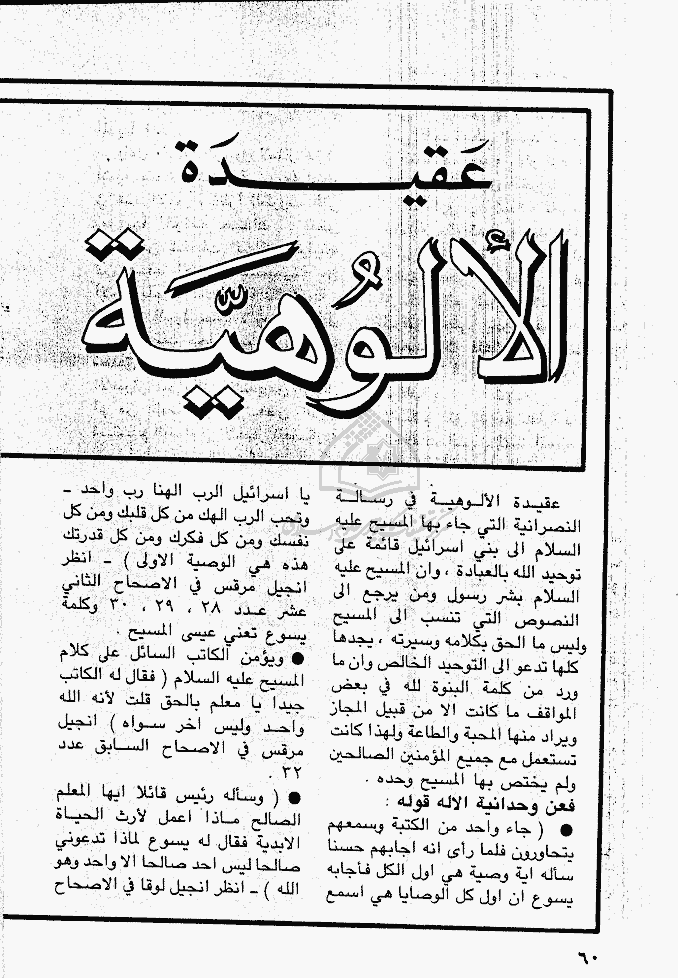 عقيدة
الألوهية
عقيدة الألوهية في رسالة
النصرانية التي جاء بها المسيح عليه
السلام الى بني اسرائيل قائمة على
توحيد الله بالعبادة ، وان المسيح عليه
السلام بشر رسول ومن يرجع الى
النصوص التي تنسب الى المسيح
وليس ما الحق بكلامه وسيرته ، يجدها
كلها تدعو الى التوحيد الخالص وان ما
ورد من كلمة البنوة لله في بعض
المواقف ما كانت الا من قبيل المجاز
ويراد منها المحبة والطاعة ولهذا كانت
تستعمل مع جميع المؤمنين الصالحين
ولم يختص بها المسيح وحده .
فعن وحدانية الاله قوله :
● ( جاء واحد من الكتبة وسمعهم
يتحاورون فلما رأى انه اجابهم حسنا
سأله اية وصية هي اول الكل فأجابه
يسوع ان اول كل الوصايا هي اسمع
يا اسرائيل الرب الهنا رب واحد ـ
وتحب الرب الهك من كل قلبك ومن كل
نفسك ومن كل فكرك ومن كل قدرتك
هذه هي الوصية الاولى ) ـ انظر
انجيل مرقس في الاصحاح الثاني
عشر عدد ٢٨ ، ٢٩ ، ٣٠ وكلمة
يسوع تعني عيسى المسيح .
● ويؤمن الكاتب السائل على كلام
المسيح عليه السلام ( فقال له الكاتب
جيدا يا معلم بالحق قلت لأنه الله
واحد وليس اخر سواه ) انجيل
مرقس في الاصحاح السابق عدد
٣٢ .
● ( وسأله رئيس قائلا ايها المعلم
الصالح ماذا اعمل لأرث الحياة
الابدية فقال له يسوع لماذا تدعوني
صالحا ليس احد صالحا الا واحد وهو
الله ) ـ انظر انجيل لوقا في الاصحاح
٦٠